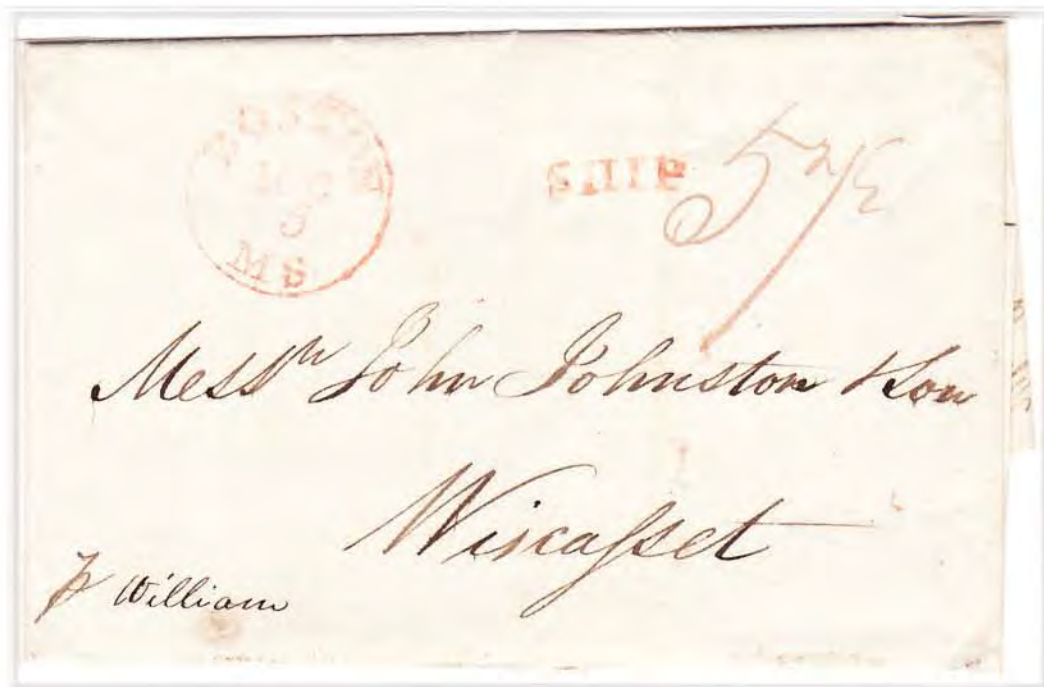 MS
SHIP
Mess^rs John Johnston & Son
Wiscasset
p William